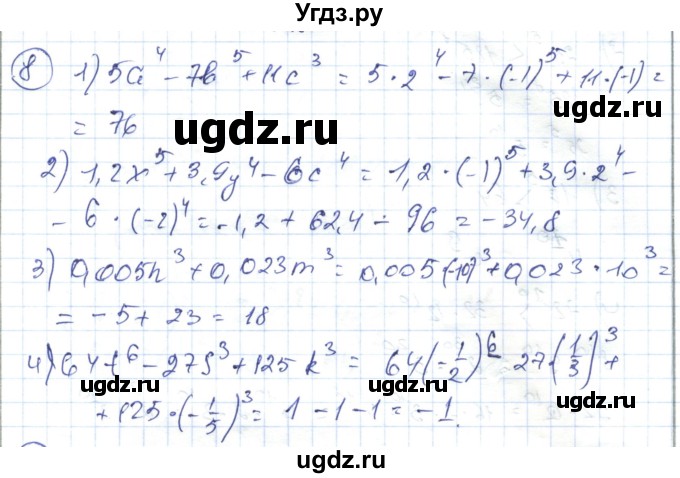 Угдз.ру
8 1) 5a⁴ - 7b⁵ + 11c³ = 5 · 2⁴ - 7 · (-1)⁵ + 11 · (-1) =
= 76
ugdz.ru ugdz.ru
2) 1,2x⁵ + 3,9y⁴ - 6c⁴ = 1,2 · (-1)⁵ + 3,9 · 2⁴ -
- 6 · (-2)⁴ = -1,2 + 62,4 - 96 = -34,8
3) 0,005n³ + 0,023m³ = 0,005(-10)³ + 0,023 · 10³ =
= -5 + 23 = 18
ugdz.ru ugdz.ru
4) 64t⁶ - 27s³ + 125k³ = 64(-1/2)⁶ 27·(1/3)³ +
+ 125 · (-1/5)³ = 1 - 1 - 1 = -1.
ugdz.ru ugdz.ru